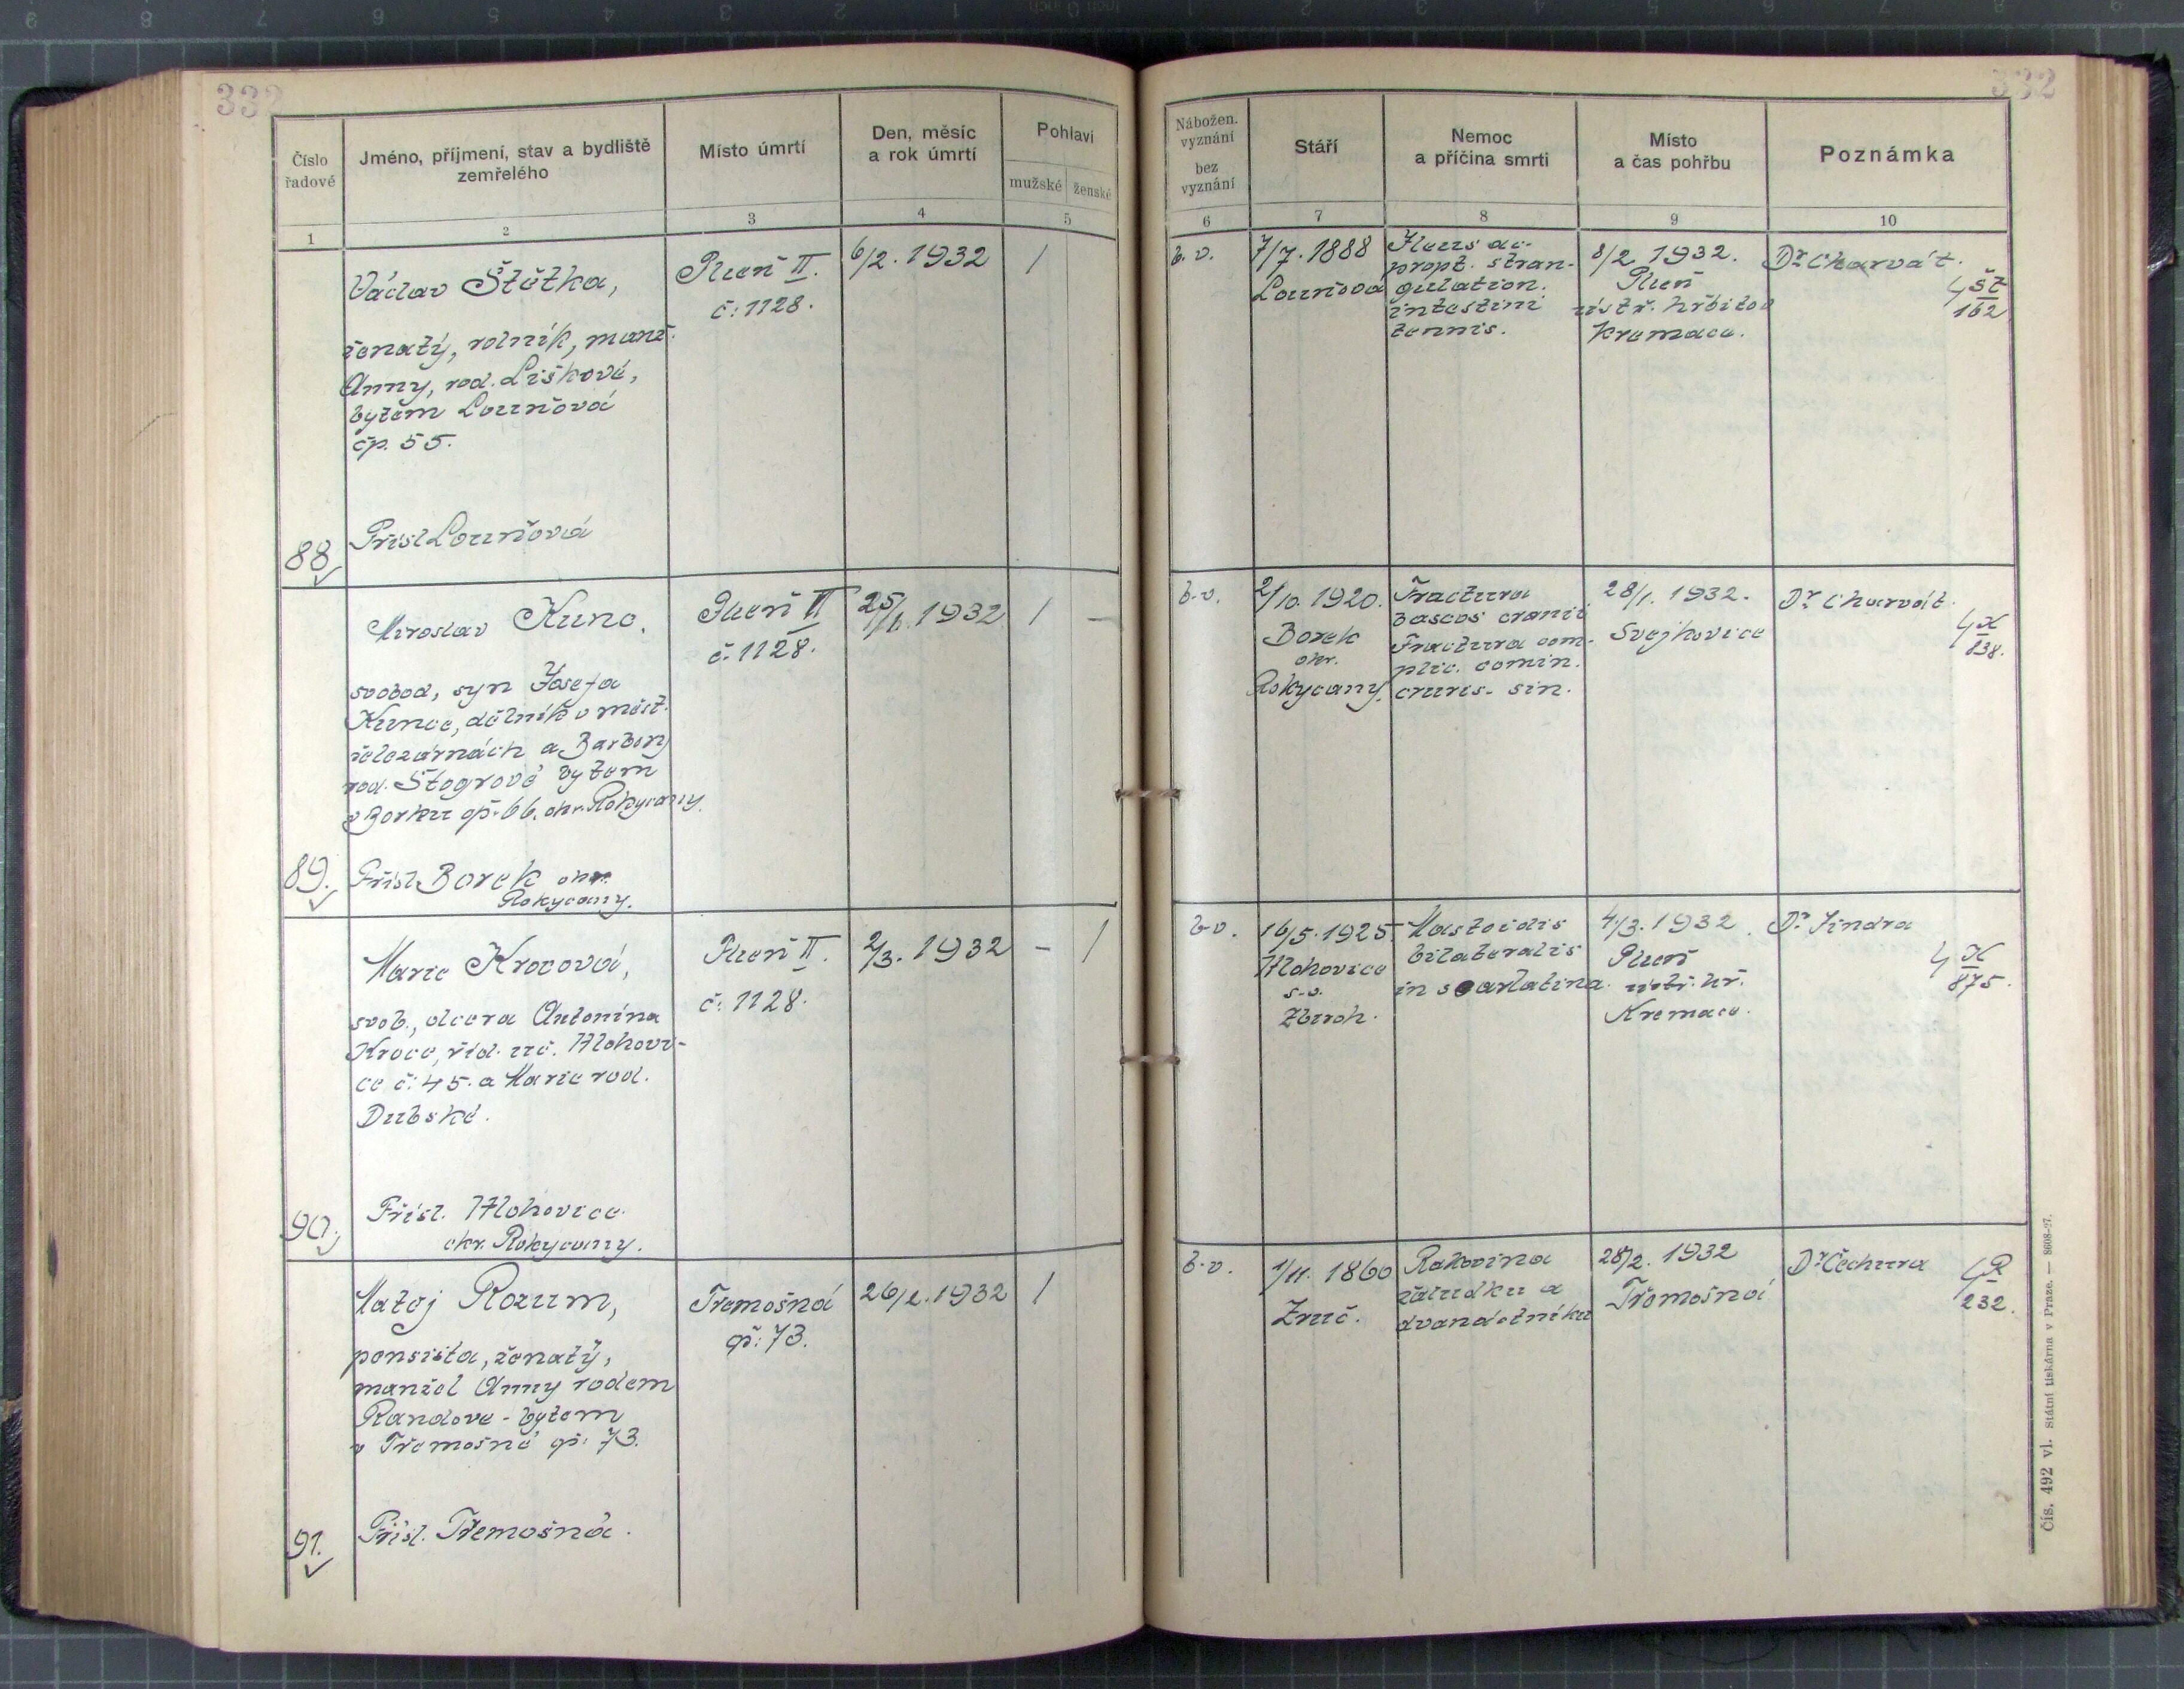 332
332
Číslo řadové
Jméno, příjmení, stav a bydliště zemřelého
Místo úmrtí
Den, měsíc a rok úmrtí
Pohlaví
mužské
ženské
Nábožen. vyznání
bez vyznání
Stáří
Nemoc a příčina smrti
Místo a čas pohřbu
Poznámka
1
2
3
4
5
6
7
8
9
10
88
Václav Štětka,
ženatý, rolník, manž.
Anny, rod. Liškové,
bytem Louňová
čp. 55.
Přísl Louňová
Plzeň II.
č: 1128.
6/2. 1932
/
b. v.
7/7. 1888
Louňová
Ileus ac-
propt. stran-
gulation.
intestini
tennis.
8/2 1932.
Plzeň
ústř. hřbitov
Kremace.
Dr Charvát.
Št
162
89.
Miroslav Kunc,
svobod, syn Josefa
Kunce, dělník v měst.
železárnách a Barbory
rod. Štogrové bytem
v Borku čp. 66. okr. Rokycany.
Přísl. Borek okr.
Rokycany.
Plzeň II
č. 1128.
25/1. 1932
/ -
b. v.
2/10. 1920.
Borek
okr.
Rokycany.
Fractura
baseos cranii
Fractura com-
plic. comin.
cruris. sin.
28/1. 1932.
Svejkovice
Dr Charvát.
K
838.
90.
Marie Krocová,
svob., dcera Antonína
Kroce, říd. uč. Hlohovi-
ce č: 45. a Marie rod.
Dubské.
Přísl. Hlohovice
okr. Rokycany.
Plzeň II.
č: 1128.
2/3. 1932
- /
b. v.
16/5. 1925.
Hlohovice
s. o.
Zbiroh.
Mastoidis
bilateralis
in scarlatina.
4/3. 1932.
Plzeň
ústř. hř.
Kremace.
Dr Jindra
K
875.
91.
Matěj Rozum,
pensista, ženatý,
manžel Anny rodem
Randove - bytem
v Třemošné čp: 73.
Přísl. Třemošná.
Třemošná
čp: 73.
26/2. 1932
/
b. v.
1/11. 1860
Zruč.
Rakovina
žaludku a
dvanáctníku
28/2. 1932
Třemošná
Dr Čechura
R
232.
Čís. 492 vl. Státní tiskárna v Praze. — 8608-27.